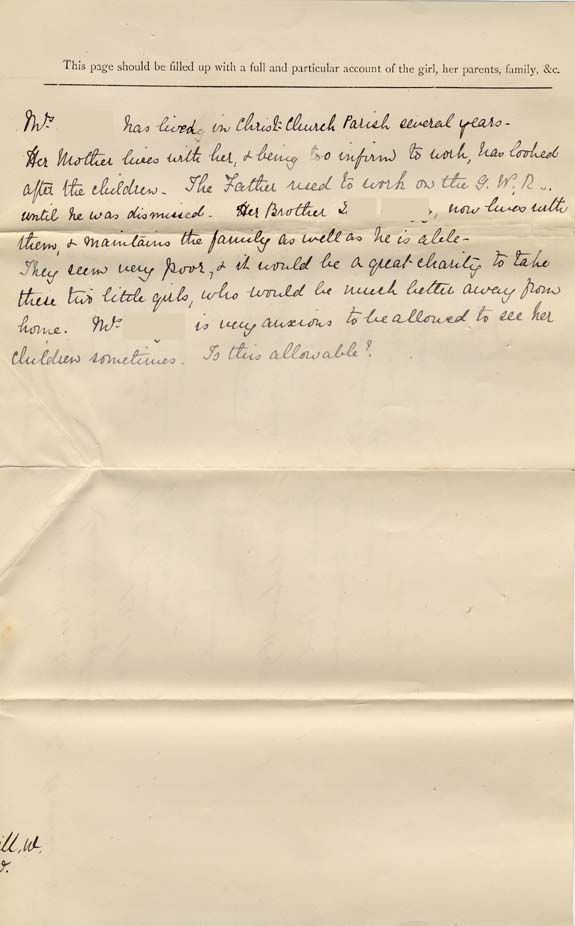 This page should be filled up with a full and particular account of the girl, her parents, family, &c.
Mrs has lived in Christ Church Parish several years-
Her Mother lives with her, & being too infirm to work, has looked
after the children. The Father used to work on the G. W. R..
until he was dismissed. Her Brother E , now lives with
them, & maintains the family as well as he is able-
They seem very poor, & it would be a great charity to take
these two little girls, who would be much better away from
home. Mrs is very anxious to be allowed to see her
children sometimes. Is this allowable?
ill, W.